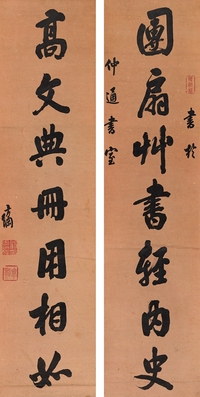 團扇艸書輕內史
書於
仲通書室
高文典冊用相如